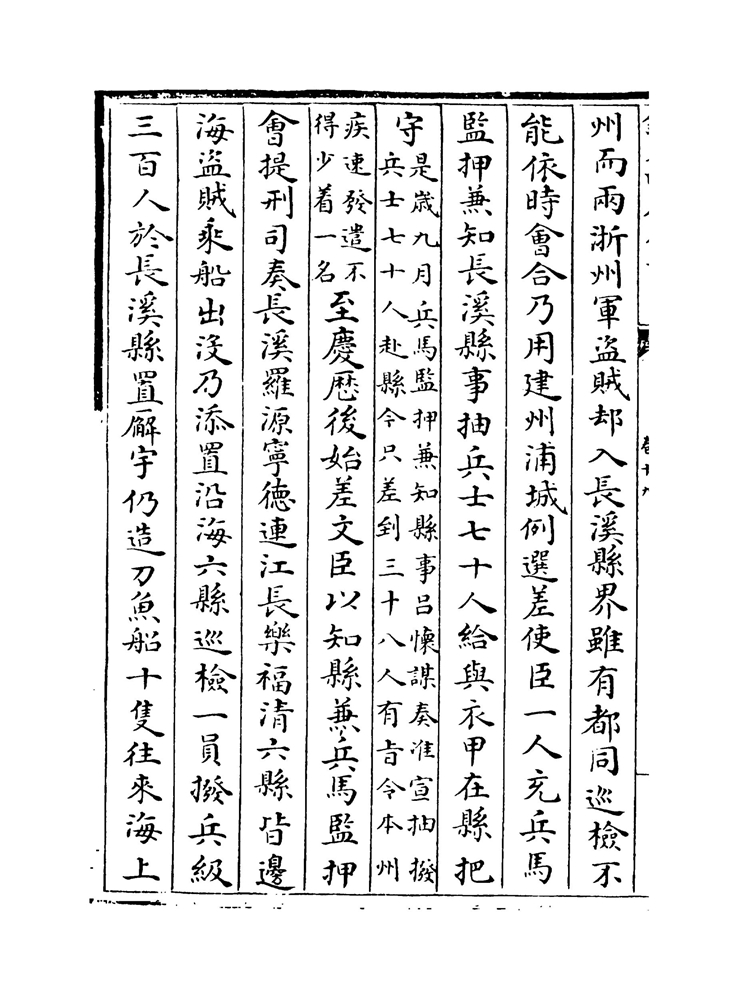 州而兩浙州軍盗賊却入長溪縣界雖有都同巡檢不
能依時會合乃用建州浦城例選差使臣一人充兵馬
監押兼知長溪縣事抽兵士七十人給與衣甲在縣把
守
是歲九月兵馬監押兼知縣事吕懐謀奏准宣抽撥
兵士七十人赴縣今只差到三十八人有旨令本州
疾速發遣不
得少着一名
至慶厯後始差文臣以知縣兼兵馬監押
會提刑司奏長溪羅源寧徳連江長樂福清六縣皆邊
海盜賊乘船出沒乃添置沿海六縣巡檢一員撥兵級
三百人於長溪縣置廨宇仍造刀魚船十隻往來海上